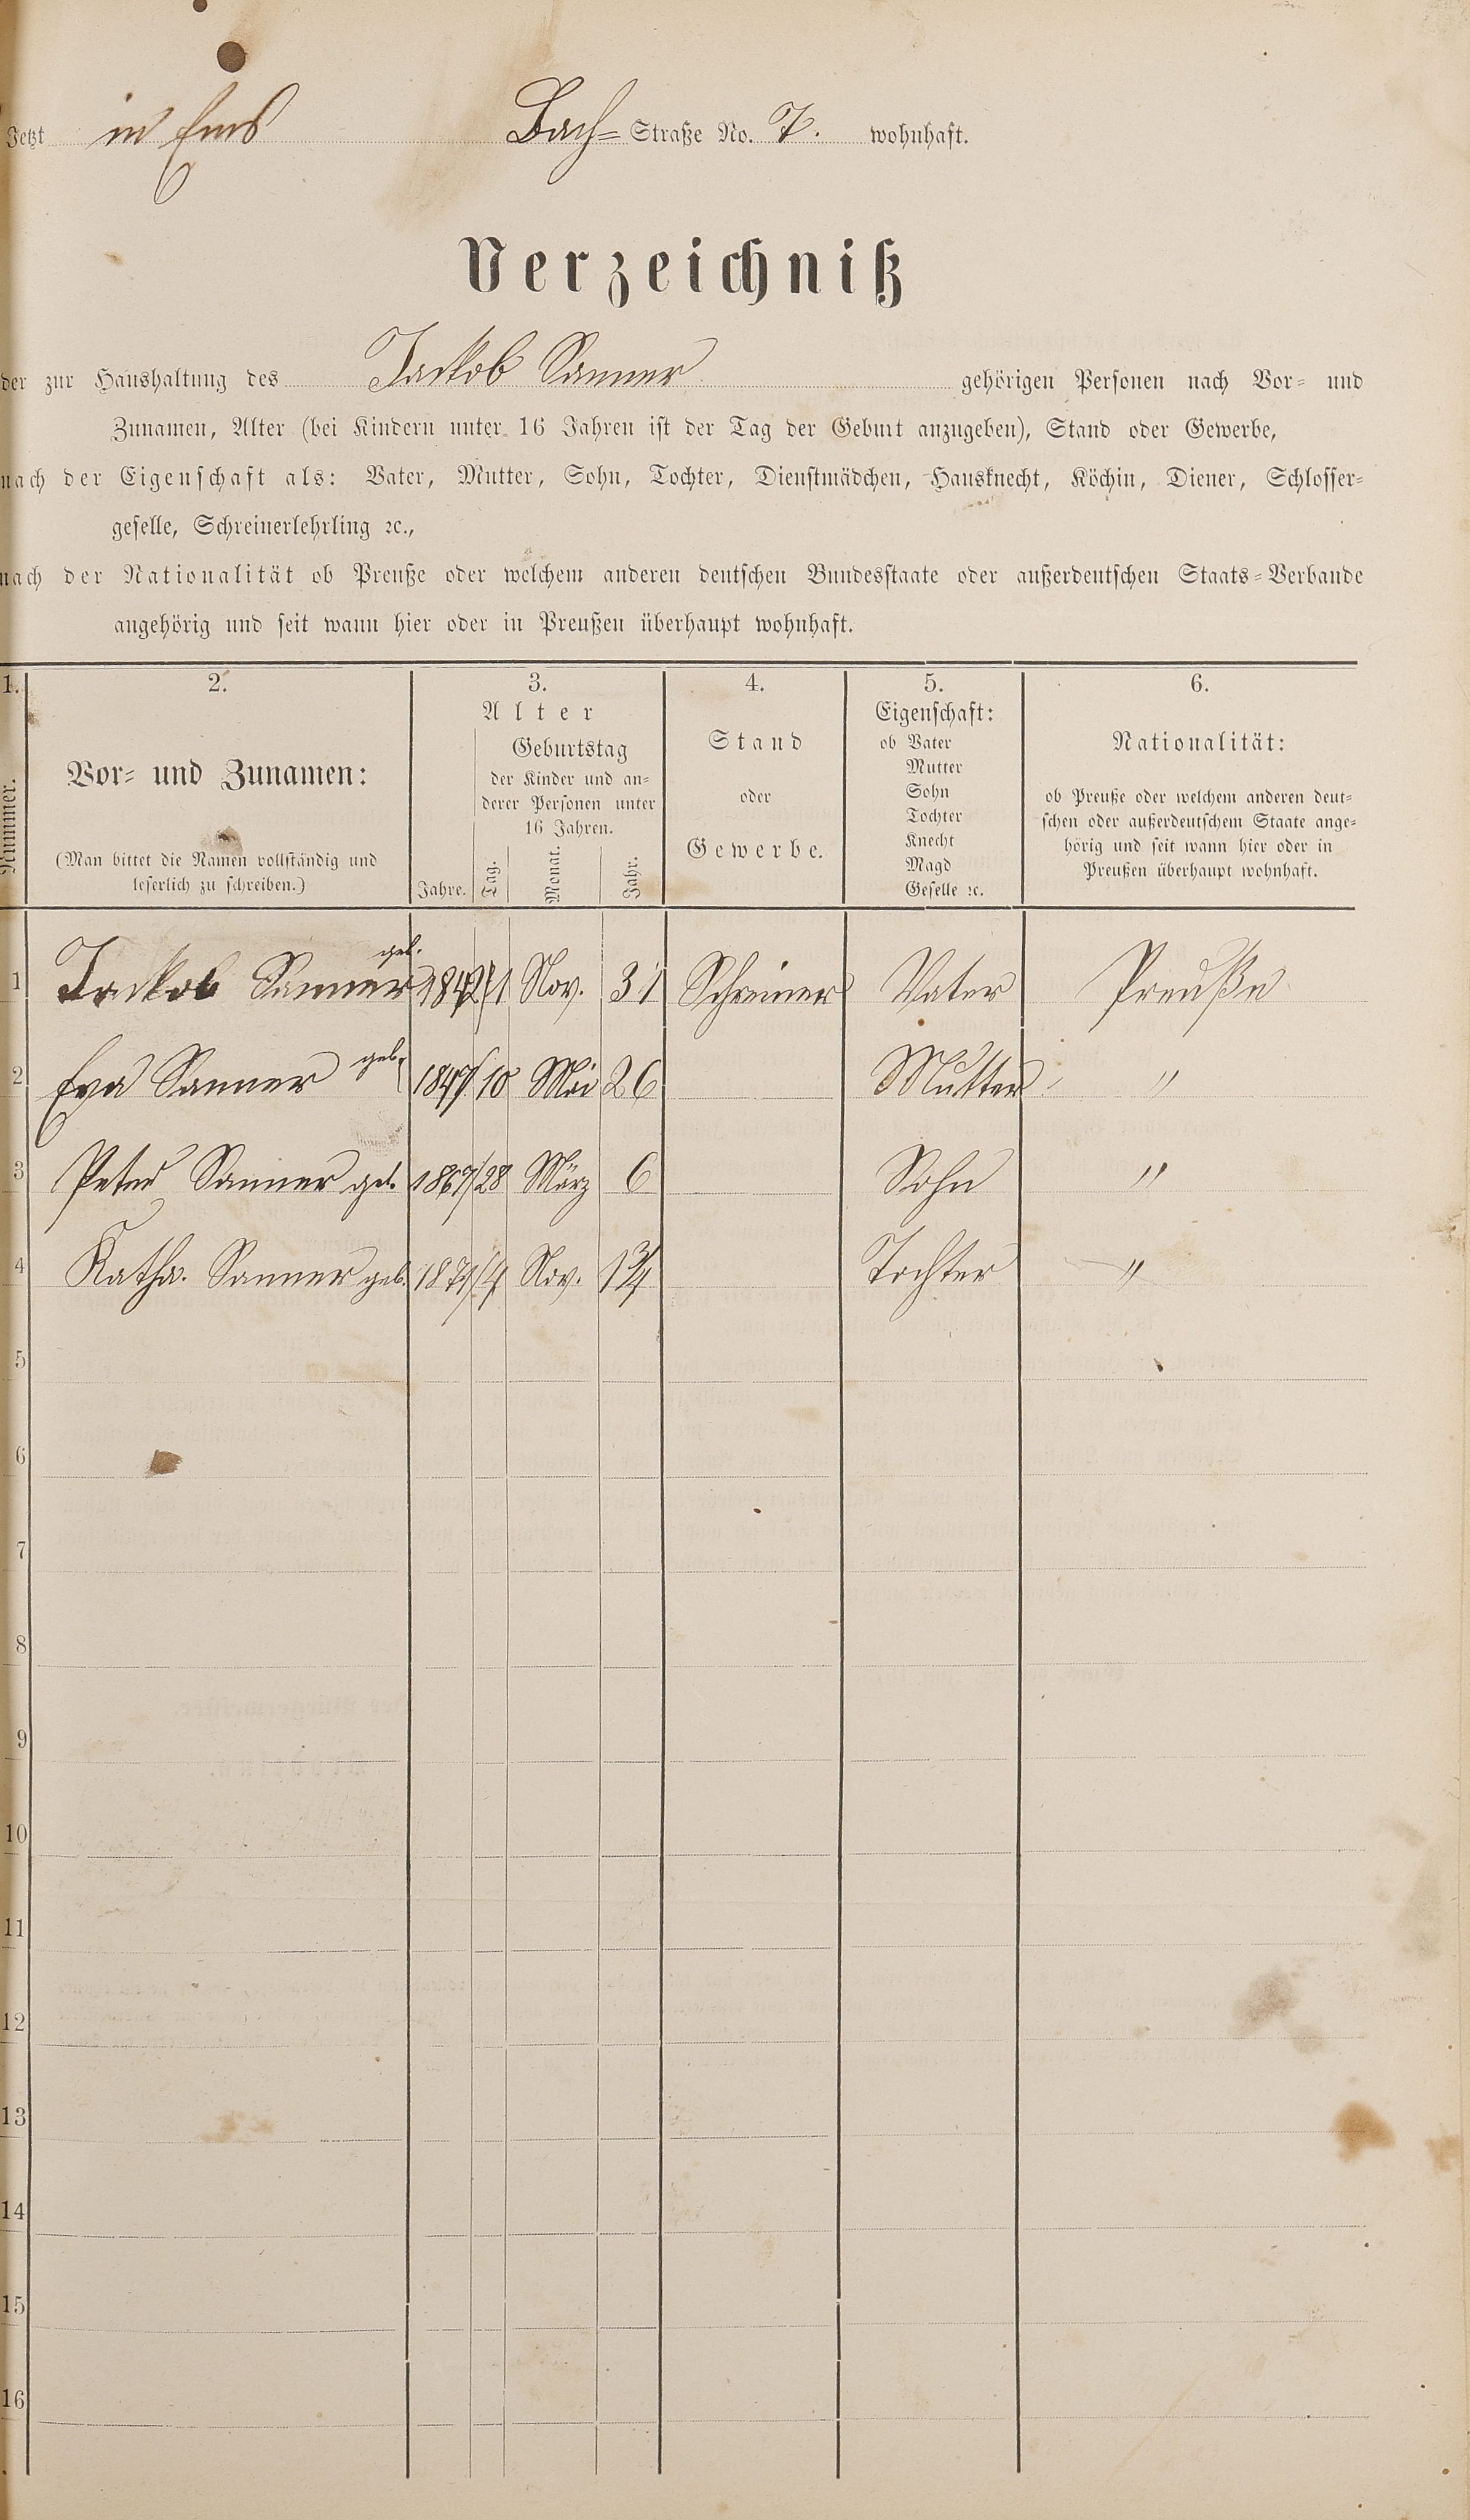 Jetzt in Ems Bach= Straße No. 7. wohnhaft.
Verzeichniß
der zur Haushaltung des Jackob Sanner gehörigen Personen nach Vor= und
Zunamen, Alter (bei Kindern unter 16 Jahren ist der Tag der Geburt anzugeben), Stand oder Gewerbe,
nach der Eigenschaft als: Vater, Mutter, Sohn, Tochter, Dienstmädchen, Hausknecht, Köchin, Diener, Schlosser=
geselle, Schreinerlehrling ꝛc.,
nach der Nationalität ob Preuße oder welchem anderen deutschen Bundesstaate oder außerdeutschen Staats=Verbande
angehörig und seit wann hier oder in Preußen überhaupt wohnhaft.
1. 2. 3. 4. 5. 6.
Nummer.
Vor= und Zunamen:
(Man bittet die Namen vollständig und
leserlich zu schreiben.)
Alter
Jahre.
Geburtstag
der Kinder und an=
derer Personen unter
16 Jahren.
Tag. Monat. Jahr.
Stand
oder
Gewerbe.
Eigenschaft:
ob Vater
Mutter
Sohn
Tochter
Knecht
Magd
Geselle ꝛc.
Nationalität:
ob Preuße oder welchem anderen deut=
schen oder außerdeutschem Staate ange=
hörig und seit wann hier oder in
Preußen überhaupt wohnhaft.
1 Jackob Sanner geb. 1842 Nov. 31 Schreiner Vater Preuße
2 Eva Sanner geb. 1847 10 Mai 26 Mutter "
3 Peter Sanner geb. 1867 28 März 6 Sohn "
4 Katha. Sanner geb. 1871 4 Nov. 1¾ Tochter "
5
6
7
8
9
10
11
12
13
14
15
16